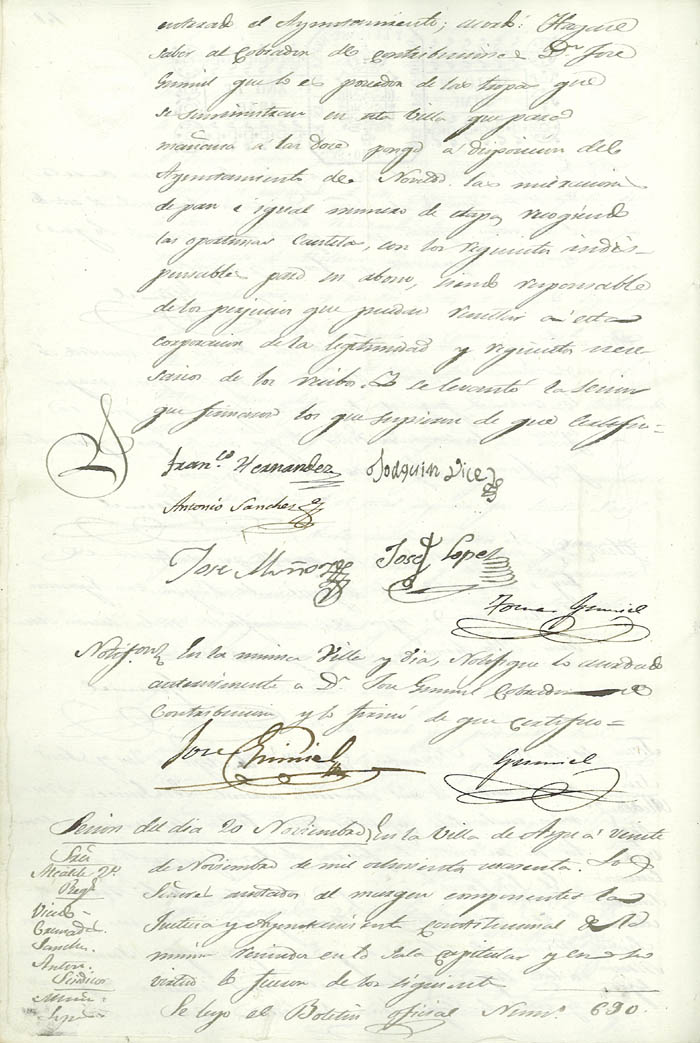 enterado el Ayuntamiento; acordó: Hagase
saber al Cobrador de contribuciones Dn. José
Gumiel que lo es poseedor de las tropas que
se suministran en esta Villa que para
mañana a las doce ponga a disposicion del
Ayuntamiento de Novelda las raciones
de pan é igual numero de etapa, recogiendo
las oportunas Cautelas, con los requisitos indis-
pensables para su abono, siendo responsable
de los perjuicios que puedan resultar a esta
corporacion de la legitimidad y requisitos nece
sarios de los recibos. Y se levantó la sesion
que firmaron los que supieron de que Certifico=
Franco. Hernandez Joaquin Vicedo
Antonio Sanchez
Jose Muñoz José Lopez
Tomas Gumiel
Notifon. En la misma Villa y dia, Notifique lo acordado
anteriormente a Dn. Jose Gumiel Cobrador de
Contribucion y lo firmó de que certifico=
Jose Gumiel Gumiel
Sesion del dia 20 Noviembre) En la Villa de Aspe á veinte
Sres.
Alcalde 2o.
Regs.
Vicedo
Sanchez.
Anton.
Sindico
Muñoz
de Noviembre de mil ochocientos cuarenta. Los
Señores anotados al margen componentes la
Justicia y Ayuntamiento Constitucional de la
misma reunidos en la Sala capitular y en
virtud lo fueron de los siguientes
Se leyó el Boletin oficial Num. 690.